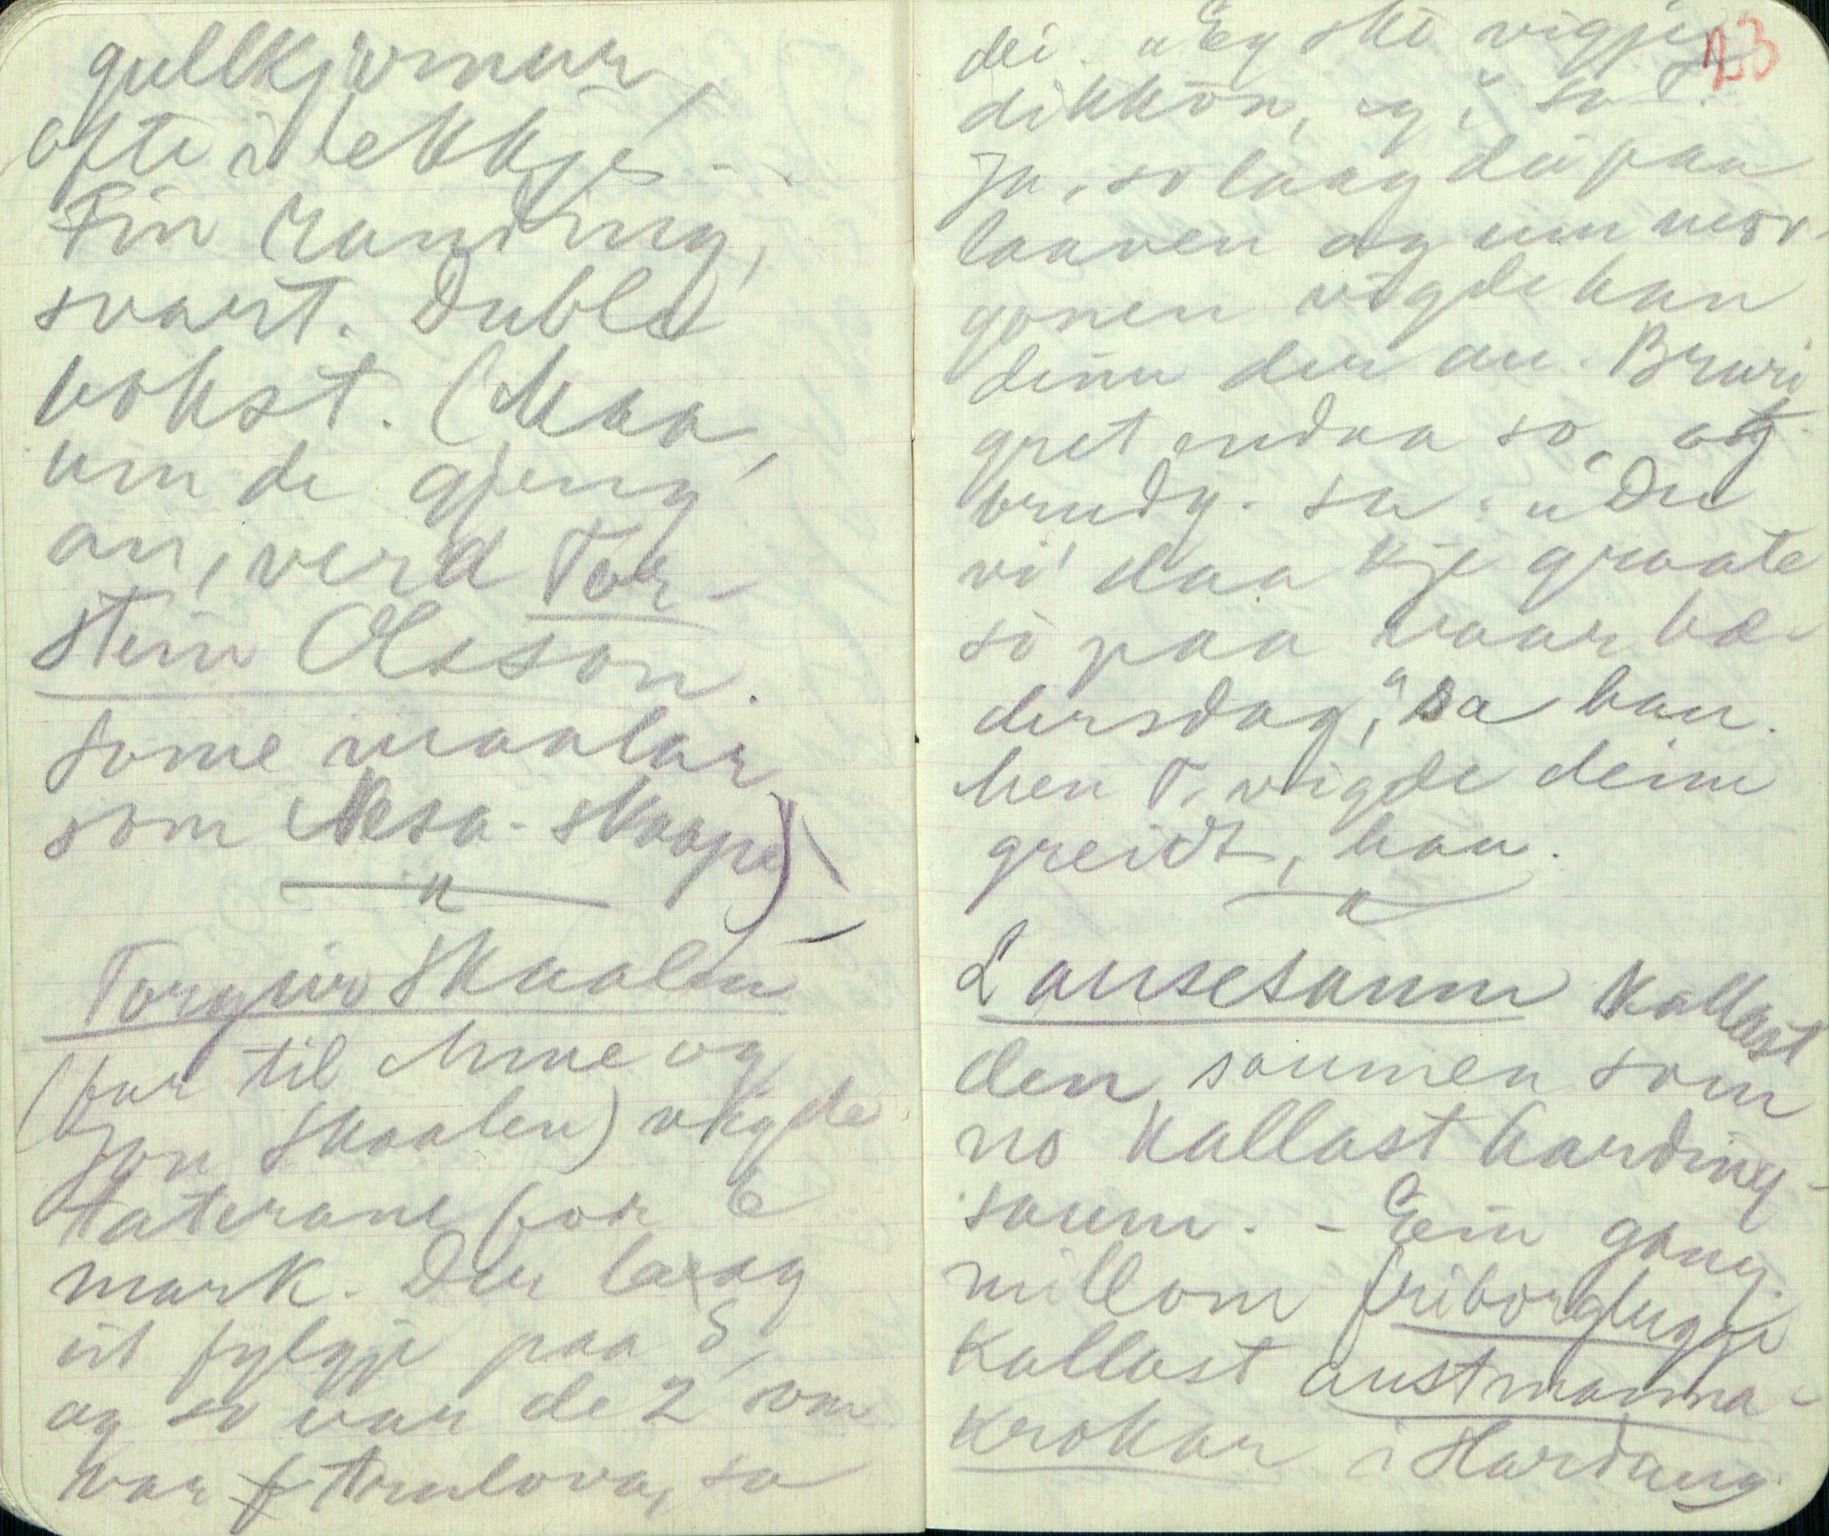 gullkjornur,
ofte i lekkje -.
Fin randing,
svart. Dubla
bokst. (Maa,
um de gjeng
an, verd Tor-
stein Olsson.
Some maalar
som Nesa-skaape)
Torgeir Skaalen
(far til Anne og
Jon Skaalen) vigde
taterane for 6
mark. Der laag
eit fylgje paa S,
og so var de 2 som
var trulova, sa
23
dei. "Eg ska vigje
dikkon, eg", sa T.
Ja, so laag dei paa
laaven og um mor-
gonen vigde han
deim der au. Bruri
gret endaa so, og
brudg. sa. "Du
vi' daa kje graate
so paa vaar hæ-
dersdag," sa han.
Men T. vigde deim
greidt, han.
Lausesaum kallast
den saumen som
no kallast harding-
saum. - Ein gong
millom friborglugge
kallast austmanna-
krokar i Hardang